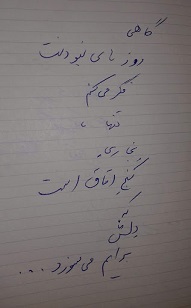 گاهی
روز های نبودنت
فکر می‌کنم
تنها
بخاریِ
کنج اتاق است
دلش
برایم می‌سوزد ...